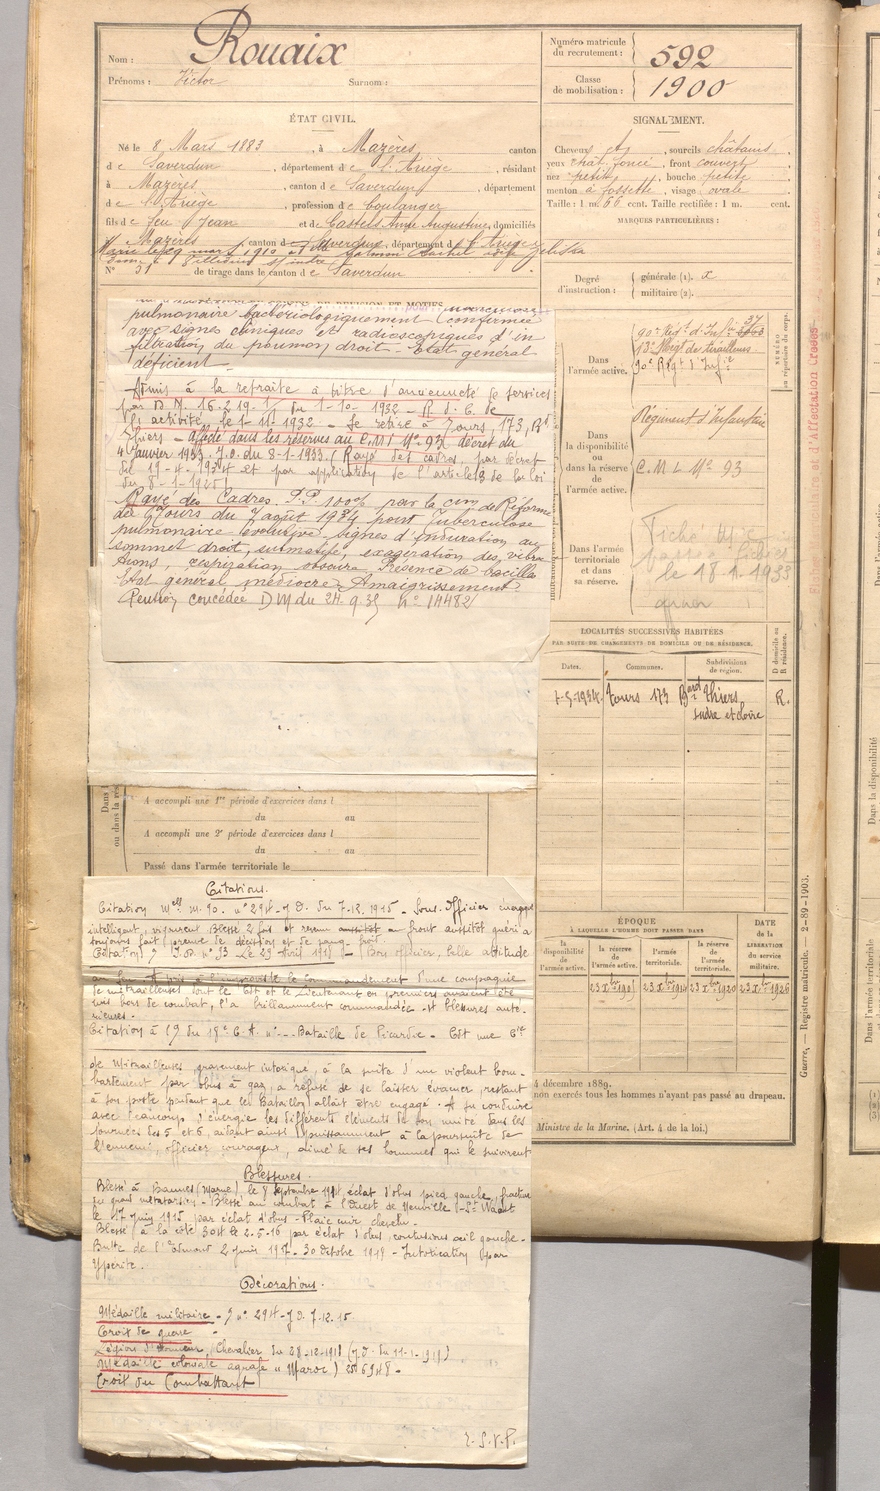 Nom : Rouaix
Prénoms : Victor Surnom :
Numéro matricule du recrutement : 592
Classe de mobilisation : 1900
ÉTAT CIVIL.
Né le 8 Mars 1883, à Mazères, canton
de Saverdun, département de l'Ariège, résidant
à Mazères, canton de Saverdun, département
de l'Ariège, profession de boulanger
fils de feu Jean et de Castels Anne Augustine, domiciliés
à Mazères, canton de Saverdun, département de l'Ariège
N° 31 de tirage dans le canton de Saverdun
SIGNALEMENT.
Cheveux , sourcils châtains
yeux chat. foncé, front couvert
nez petit, bouche petite
menton à fossette, visage ovale
Taille : 1 m. 66 cent. Taille rectifiée : 1 m. cent.
MARQUES PARTICULIÈRES :
Degré d'instruction : générale (1). x
militaire (2).
pulmonaire bactériologiquement confirmée
avec signes cliniques et radioscopiques d'in
filtration du poumon droit - Etat général
déficient
Admis à la retraite à titre d'ancienneté de services
par D M. 16.2.19. du 1-10-1932 - R. d. C. de
l'activité le 1-11-1932 - Se retire à Tours, 173, Bd
Thiers - Affecté dans les réserves au C.M.I N° 93, décret du
4 Janvier 1933. J.O. du 8-1-1933. Rayé des cadres par décret
du 19-4-1934 et par application de l'article de la loi
du 8-1-1925
Rayé des Cadres. P.P. 100% par la com de Réforme
de Tours du 7 août 1934 pour Tuberculose
pulmonaire évolutive, signes d'induration au
sommet droit, submatité, exagération des vibra
tions, respiration obscure. Présence de bacilles
Etat général médiocre. Amaigrissement
Pension concédée D M du 24.9.35 N° 14482
Dans l'armée active. 90e Régt d'Infie
13e Régt de tirailleurs
90e Régt d'Infie
Dans la disponibilité ou dans la réserve de l'armée active. Régiment d'Infanterie
C.M I. N° 93
Dans l'armée territoriale et dans sa réserve.
le 18.1.1933
NUMÉRO au répertoire du corps.
LOCALITÉS SUCCESSIVES HABITÉES
PAR SUITE DE CHANGEMENTS DE DOMICILE OU DE RÉSIDENCE.
Dates. Communes. Subdivisions de région. D domicile ou R résidence.
1-5-1934. Tours 173 Bard Thiers, R.
Indre et Loire
A accompli une 1re période d'exercices dans l
du au
A accompli une 2e période d'exercices dans l
du au
Passé dans l'armée territoriale le
ÉPOQUE
À LAQUELLE L'HOMME DOIT PASSER DANS
la disponibilité de l'armée active. la réserve de l'armée active. l'armée territoriale. la réserve de l'armée territoriale.
DATE de la LIBÉRATION du service militaire.
23 Xbre 1901 23 Xbre 1914 23 Xbre 1920 23 Xbre 1926
4 décembre 1889.
non exercés tous les hommes n'ayant pas passé au drapeau.
Ministre de la Marine. (Art. 4 de la loi.)
Guerre, — Registre matricule. — 2-89-1903.
Citations.
Citation Mlle M. 90. n° 294 - J O. du 7-12.1915 - Sous-Officier énergique
intelligent, vigoureux. Blessé 2 fois et revenu au front aussitôt guéri a
toujours fait preuve de décision et de sang froid.
Le 29 Avril 1917 - Bon officier, belle attitude
au feu. A pris à l'improviste le commandement d'une compagnie
de mitrailleuses dont le Cdt et le Lieutenant en premier avaient été
mis hors de combat, l'a brillamment commandée - 4 blessures anté-
rieures.
Citation à l'O du 18e C. A. - Bataille de Picardie - Cdt une Cie
de Mitrailleuses, gravement intoxiqué, à la suite d'un violent bom-
bardement par obus à gaz, a refusé de se laisser évacuer, restant
à son poste pendant que le Bataillon allait être engagé. A su conduire
avec beaucoup d'énergie les différents éléments de son unité dans les
journées des 5 et 6, aidant ainsi puissamment à la poursuite de
l'ennemi, officier courageux, aimé de ses hommes qui le suivirent
Blessures.
Blessé à Bannes (Marne), le 8 Septembre 1914, éclat d'obus pied gauche, fracture
du grand métatarsien - Blessé au combat à l'Ouest de Neuville St Waast
le 17 Juin 1915 par éclat d'obus - Plaie cuir chevelu.
Blessé à la côte 304 le 2-5-16 par éclat d'obus, contusions œil gauche.
Butte de 2 juin 1917 - 30 Octobre 1918 - Intoxication par
Ypérite.
Décorations.
Médaille militaire - J n° 294 - J O. 7-12-15
Croix de guerre
Légion d'Honneur, Chevalier du 28-12-1918 (J.O. du 11-1-1919)
Médaille coloniale agrafe "Maroc"
Croix du Combattant
T. S. V. P.